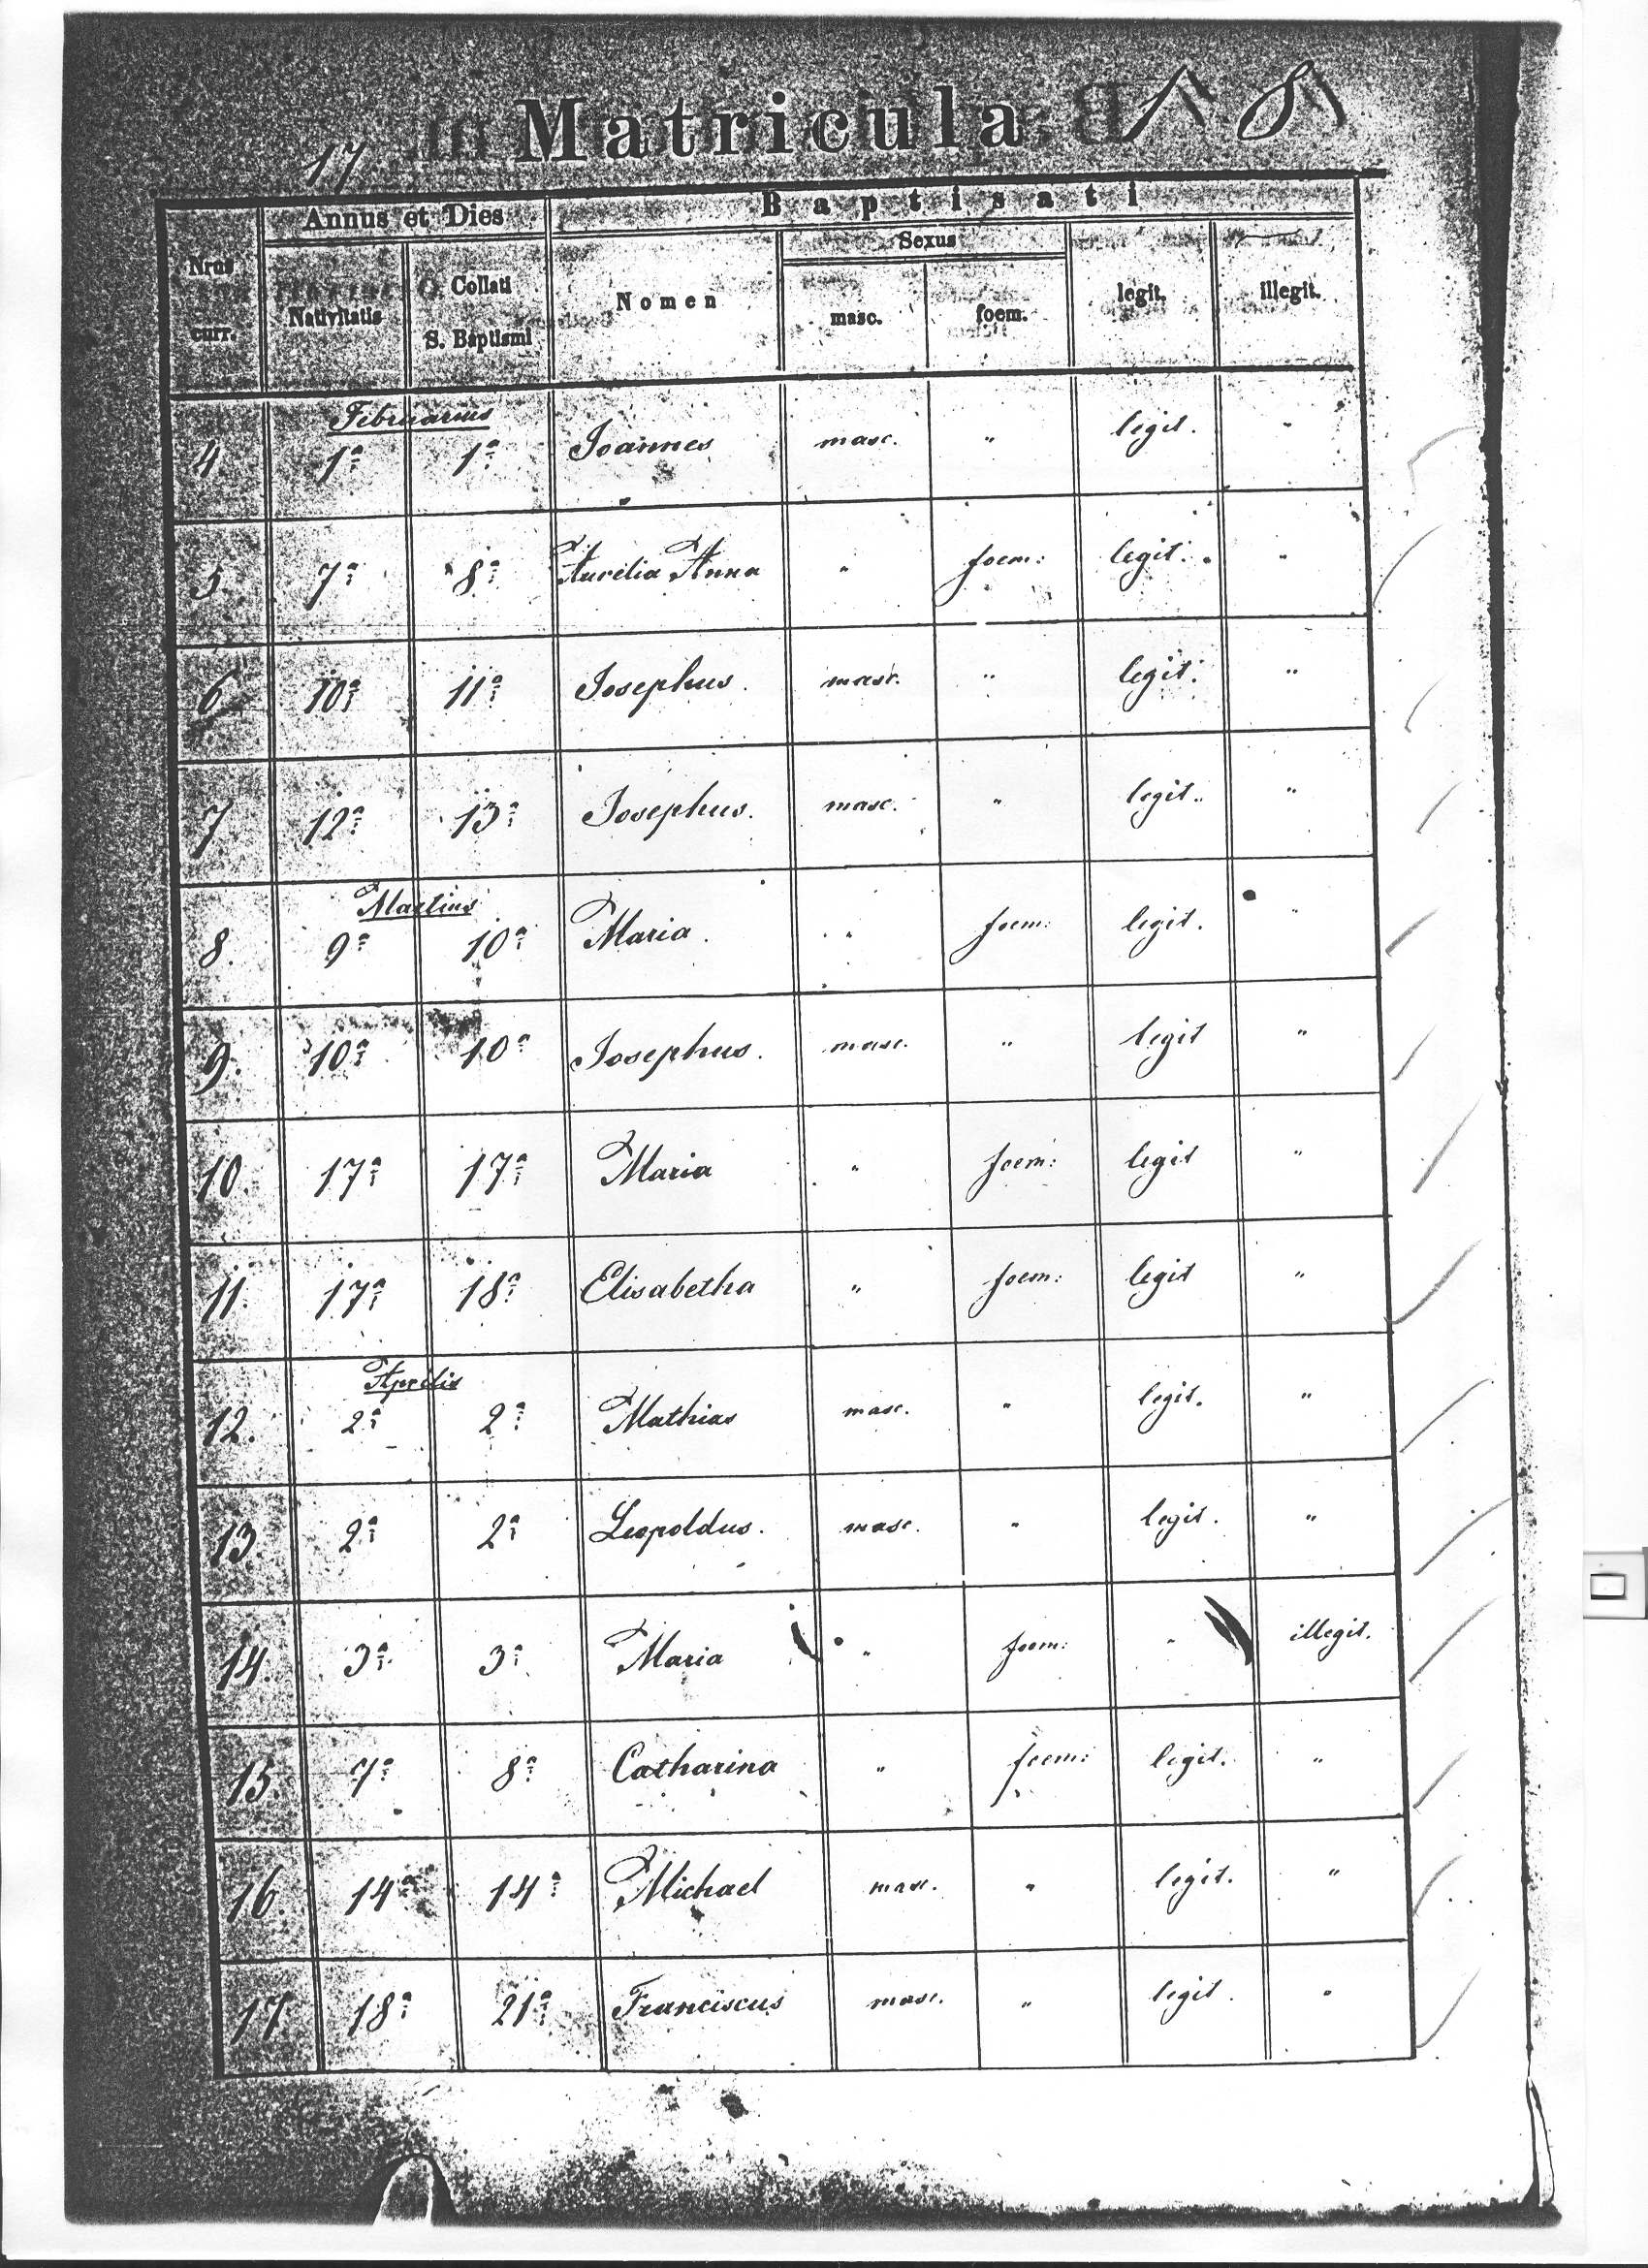 Matricula
17
Annus et Dies Baptisati
Sexus
Nrus curr. Nativitatis Collati S. Baptismi Nomen masc. foem. legit. illegit.
Februarius
4 1a 1a Joannes masc. " legit. "
5 7a 8a Aurelia Anna " foem: legit. "
6 10a 11a Josephus. masc. " legit. "
7 12a 13a Josephus. masc. " legit. "
Martius
8. 9a 10a Maria. " foem: legit. "
9. 10a 10a Josephus. masc. " legit "
10. 17a 17a Maria " foem: legit "
11. 17a 18a Elisabetha " foem: legit "
Aprilis
12. 2a 2a Mathias masc. " legit. "
13. 2a 2a Leopoldus. masc. " legit. "
14. 3a 3a Maria " foem: " illegit.
15. 7a 8a Catharina " foem: legit. "
16 14a 14a Michael masc. " legit. "
17 18a 21a Franciscus masc. " legit. "